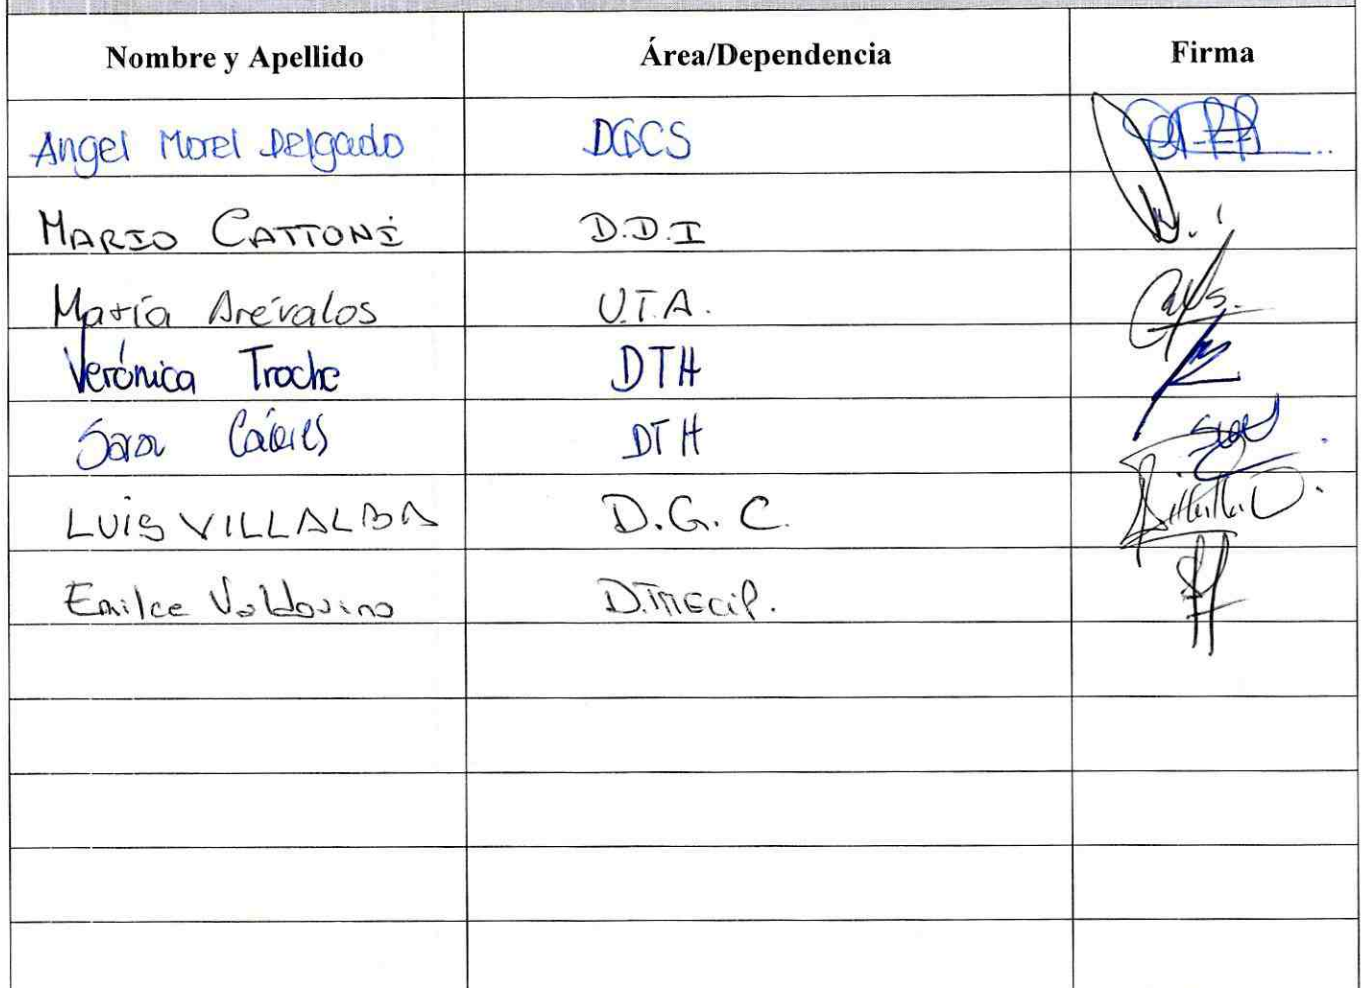 Nombre y Apellido Área/Dependencia Firma
Angel Morel Delgado DGCS
MARIO CATTONI D.D.I
María Arévalos U.T.A.
Verónica Troche DTH
Sara Cáceres DTH
LUIS VILLALBA D.G.C.
Emilce Valdovino